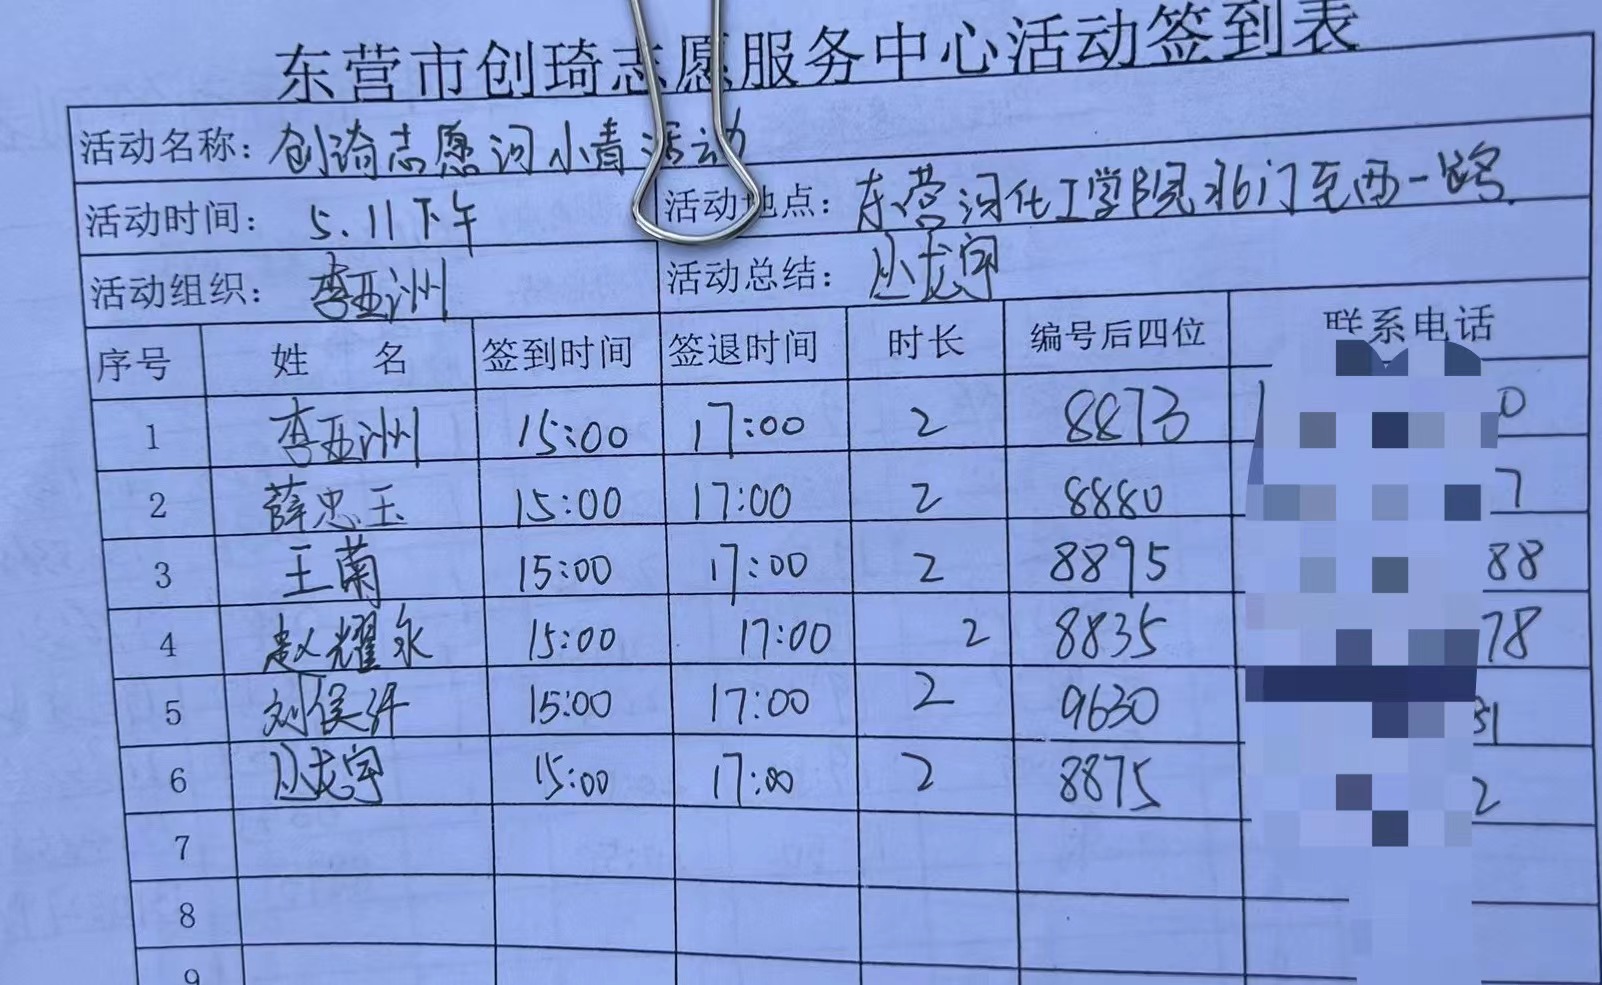 东营市创琦志愿服务中心活动签到表
活动名称：创琦志愿河小青活动
活动时间： 5.11下午 活动地点：东营河化工学院北门至西一路
活动组织： 李亚洲 活动总结： 丛龙宇
序号 姓 名 签到时间 签退时间 时长 编号后四位 联系电话
1 李亚洲 15:00 17:00 2 8873 0
2 薛忠玉 15:00 17:00 2 8880 7
3 王菊 15:00 17:00 2 8895 88
4 赵耀永 15:00 17:00 2 8835 78
5 刘侯 15:00 17:00 2 9630 31
6 丛龙宇 15:00 17:00 2 8875 2
7
8
9